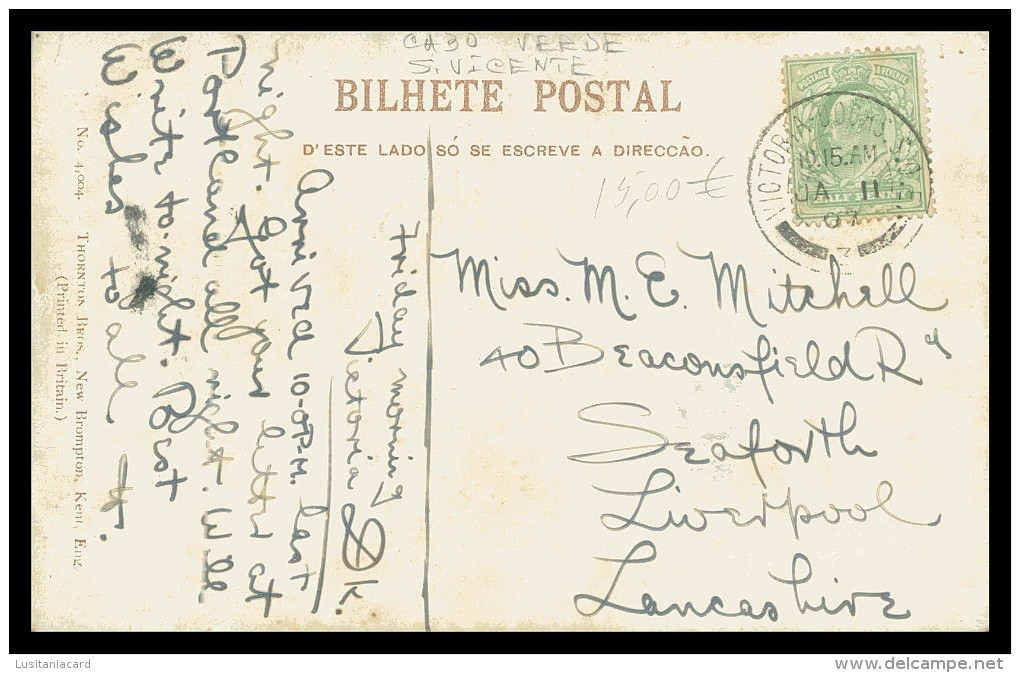 CABO VERDE
S. VICENTE
BILHETE POSTAL
D'ESTE LADO SÓ SE ESCREVE A DIRECCÃO.
15,00 €
POSTAGE & REVENUE
VICTORIA DOCKS
10.15.AM
JA 11
07
Miss. M. E. Mitchell
40 Beaconsfield Rd
Seaforth
Liverpool
Lancashire
Friday morning
Victoria Dk.
Arrived 10-0 P.M. last
night. Got your letter at
Portland all right. Will
Write to-night. Best
Wishes to all
No. 4,004. THORNTON BROS., NEW BROMPTON, KENT, ENG.
(Printed in Britain.)
Lusitaniacard
www.delcampe.net